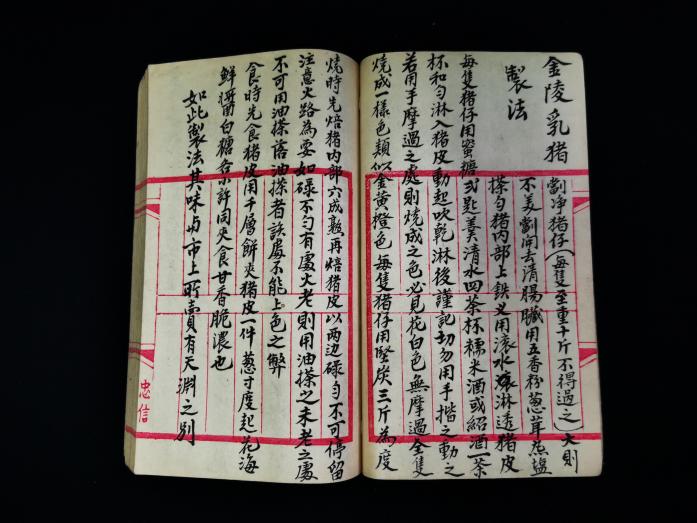 金陵乳猪
製法
劏净猪仔（每隻至重十斤不得過之）大則
不美劏開去清腸臟用五香粉葱茸熟塩
搽匀猪内部上鉄叉用滚水淋透猪皮
每隻猪仔用蜜糖弍匙羹清水四茶杯糯米酒或紹酒一茶
杯和匀淋入猪皮動起吹乾淋後謹記切勿用手揩之動之
若用手摩過之處則燒成之色必見花白色無摩過全隻
燒成一樣色類似金黄橙色每隻猪仔用堅炭三斤為度
燒時先焙猪内部六成熟再焙猪皮以两边碌匀不可停留
注意火路為要如碌不匀有處火老則用油搽之未老之處
不可用油搽落油搽者該處不能上色之弊
食時先食猪皮用千層餅夾猪皮一件葱寸度起花海
鮮醬白糖各少許同夾食甘香脆濃也
如此製法其味与市上所賣有天淵之别
忠信